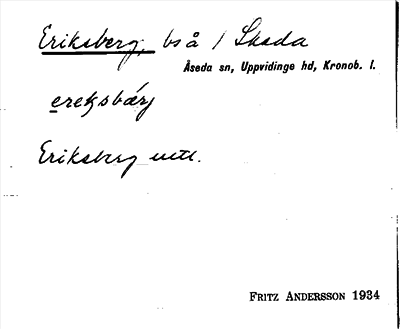 Eriksberg, bs å / Skeda
Åseda sn, Uppvidinge hd, Kronob. l.
ereksbärj
Eriksberg uttl.
FRITZ ANDERSSON 1934